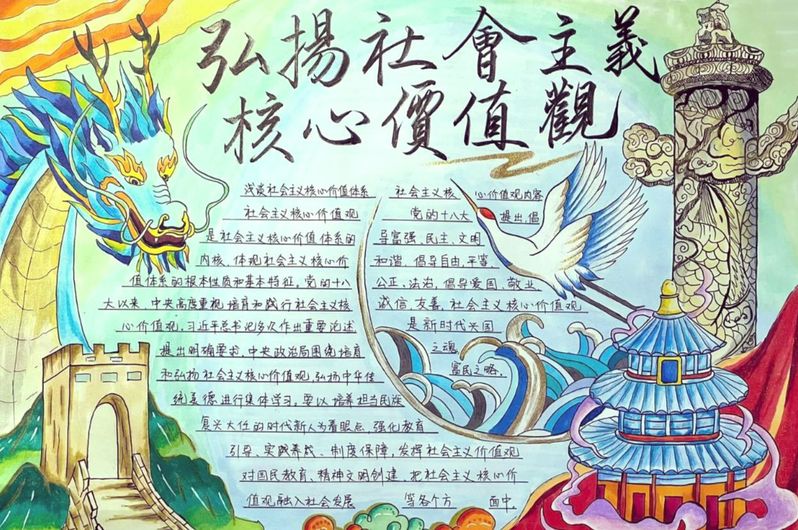 弘揚社會主義
核心價值觀
浅谈社会主义核心价值体系
社会主义核心价值观
是社会主义核心价值体系的
内核、体现社会主义核心价
值体系的根本性质和基本特征,党的十八
大以来,中央高度重视培育和践行社会主义核
心价值观,习近平总书记多次作出重要论述
提出明确要求.中央政治局围绕培育
和弘扬社会主义核心价值观 弘扬中华传
统美德进行集体学习。要以培养担当民族
复兴大任的时代新人为着眼点、强化教育
引导、实践养成、制度保障,发挥社会主义价值观
对国民教育、精神文明创建、把社会主义核心价
值观融入社会发展 等各个方 面中
社会主义核 心价值观内容
党的十八大 提出,倡
导富强、民主、文明
和谐,倡导自由、平等
公正、法治,倡导爱国、敬业
诚信、友善,社会主义核心价值观
是新时代兴国
之魂
富民之略.